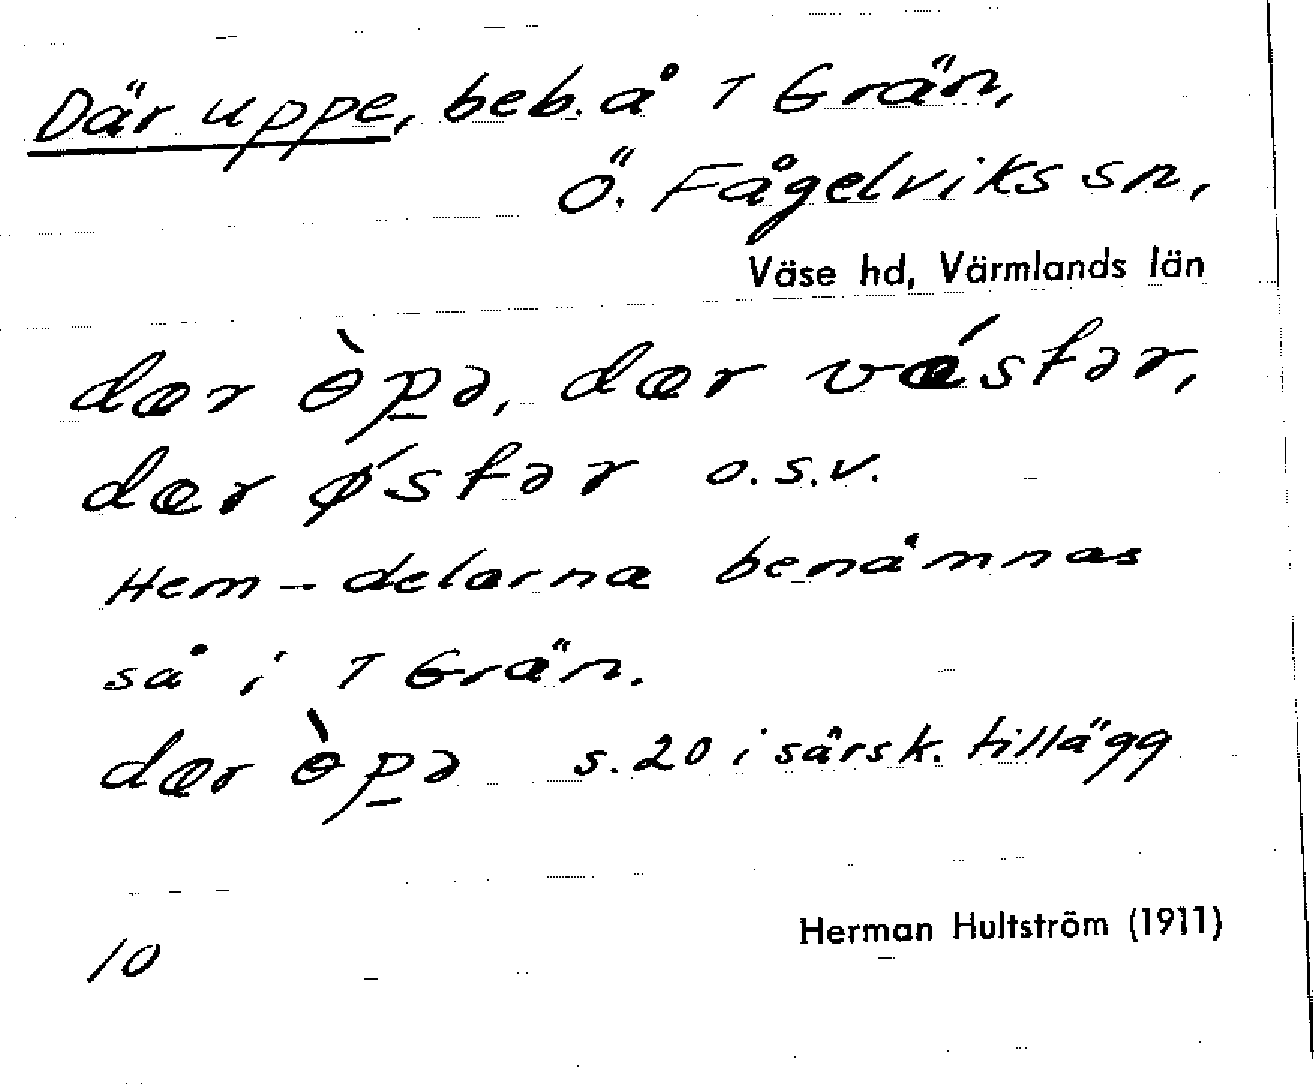 Där uppe, beb. å 1 Grän,
Ö. Fågelviks sn,
Väse hd, Värmlands län
dær ɵ̀p̠ə, dær vǽstər,
dær ǿstər o.s.v.
Hem-delarna benämnas
så i 1 Grän.
dær ɵ̀p̠ə s. 20 i särsk. tillägg
Herman Hultström (1911)
10